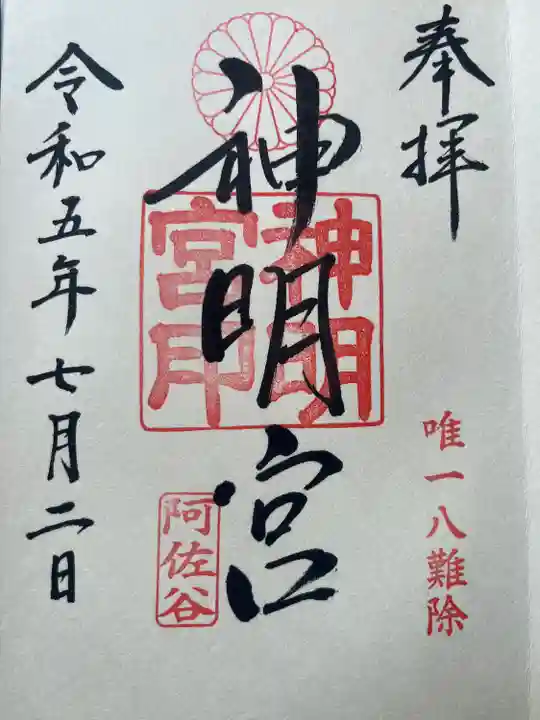 奉拝
唯一八難除
神明宮
神明宮印
阿佐谷
令和五年七月二日